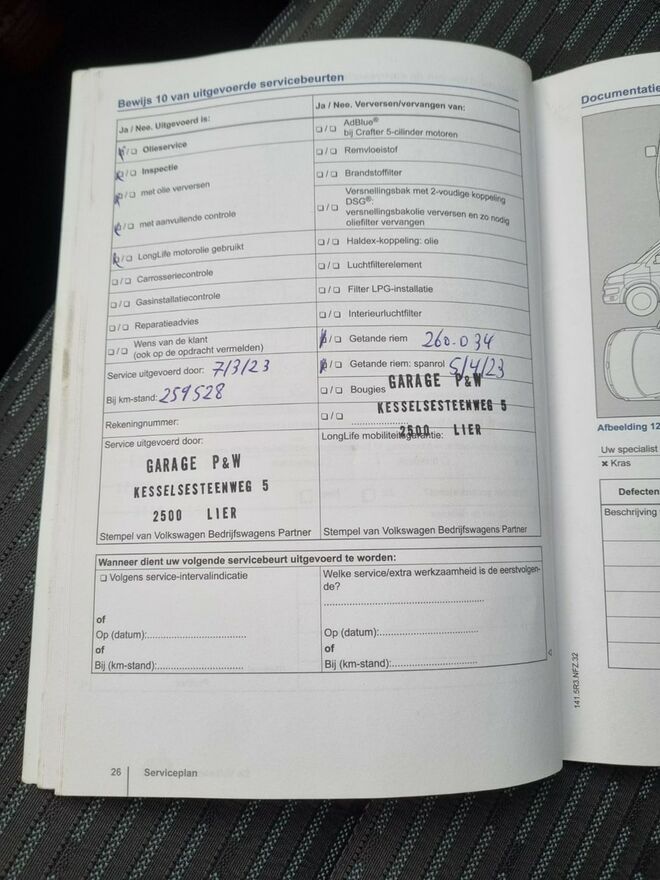 Bewijs 10 van uitgevoerde servicebeurten
Ja / Nee. Uitgevoerd is:
❏ / ❏ Olieservice
❏ / ❏ Inspectie
❏ / ❏ met olie verversen
❏ / ❏ met aanvullende controle
❏ / ❏ LongLife motorolie gebruikt
❏ / ❏ Carrosseriecontrole
❏ / ❏ Gasinstallatiecontrole
❏ / ❏ Reparatieadvies
❏ / ❏ Wens van de klant
(ook op de opdracht vermelden)
Service uitgevoerd door: 7/3/23
Bij km-stand: 259528
Rekeningnummer:
Service uitgevoerd door:
GARAGE P&W
KESSELSESTEENWEG 5
2500 LIER
Stempel van Volkswagen Bedrijfswagens Partner
Ja / Nee. Verversen/vervangen van:
❏ / ❏ AdBlue®
bij Crafter 5-cilinder motoren
❏ / ❏ Remvloeistof
❏ / ❏ Brandstoffilter
❏ / ❏ Versnellingsbak met 2-voudige koppeling
DSG®:
versnellingsbakolie verversen en zo nodig
oliefilter vervangen
❏ / ❏ Haldex-koppeling: olie
❏ / ❏ Luchtfilterelement
❏ / ❏ Filter LPG-installatie
❏ / ❏ Interieurluchtfilter
❏ / ❏ Getande riem 260.034
❏ / ❏ Getande riem: spanrol 5/4/23
❏ / ❏ Bougies GARAGE P&W
KESSELSESTEENWEG 5
❏ / ❏ ....................
2500 LIER
LongLife mobiliteitsgarantie:
Stempel van Volkswagen Bedrijfswagens Partner
Wanneer dient uw volgende servicebeurt uitgevoerd te worden:
❏ Volgens service-intervalindicatie
of
Op (datum):..................................
of
Bij (km-stand):..............................
Welke service/extra werkzaamheid is de eerstvolgen-
de?
......................................................
Op (datum):..................................
of
Bij (km-stand):..............................
26 Serviceplan
141.5R3.NFZ.32
Documentatie
Afbeelding 12
Uw specialist
× Kras
Defecten
Beschrijving